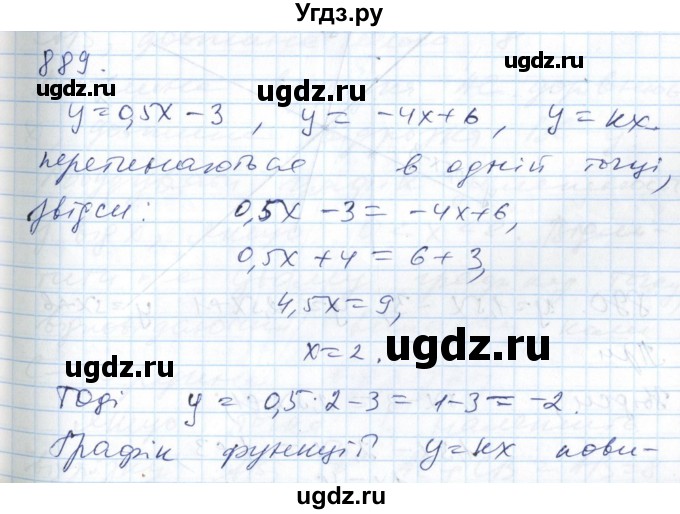 Угдз.ру
889.
ugdz.ru ugdz.ru
y = 0,5x - 3 , y = -4x + 6 , y = kx.
перетинаються в одній точці,
звідси: 0,5x - 3 = -4x + 6,
ugdz.ru
0,5x + 4 = 6 + 3,
4,5x = 9,
ugdz.ru
x = 2.
ugdz.ru
Тоді y = 0,5·2 - 3 = 1 - 3 = -2.
ugdz.ru ugdz.ru
Графік функції y = kx пови-
ugdz.ru